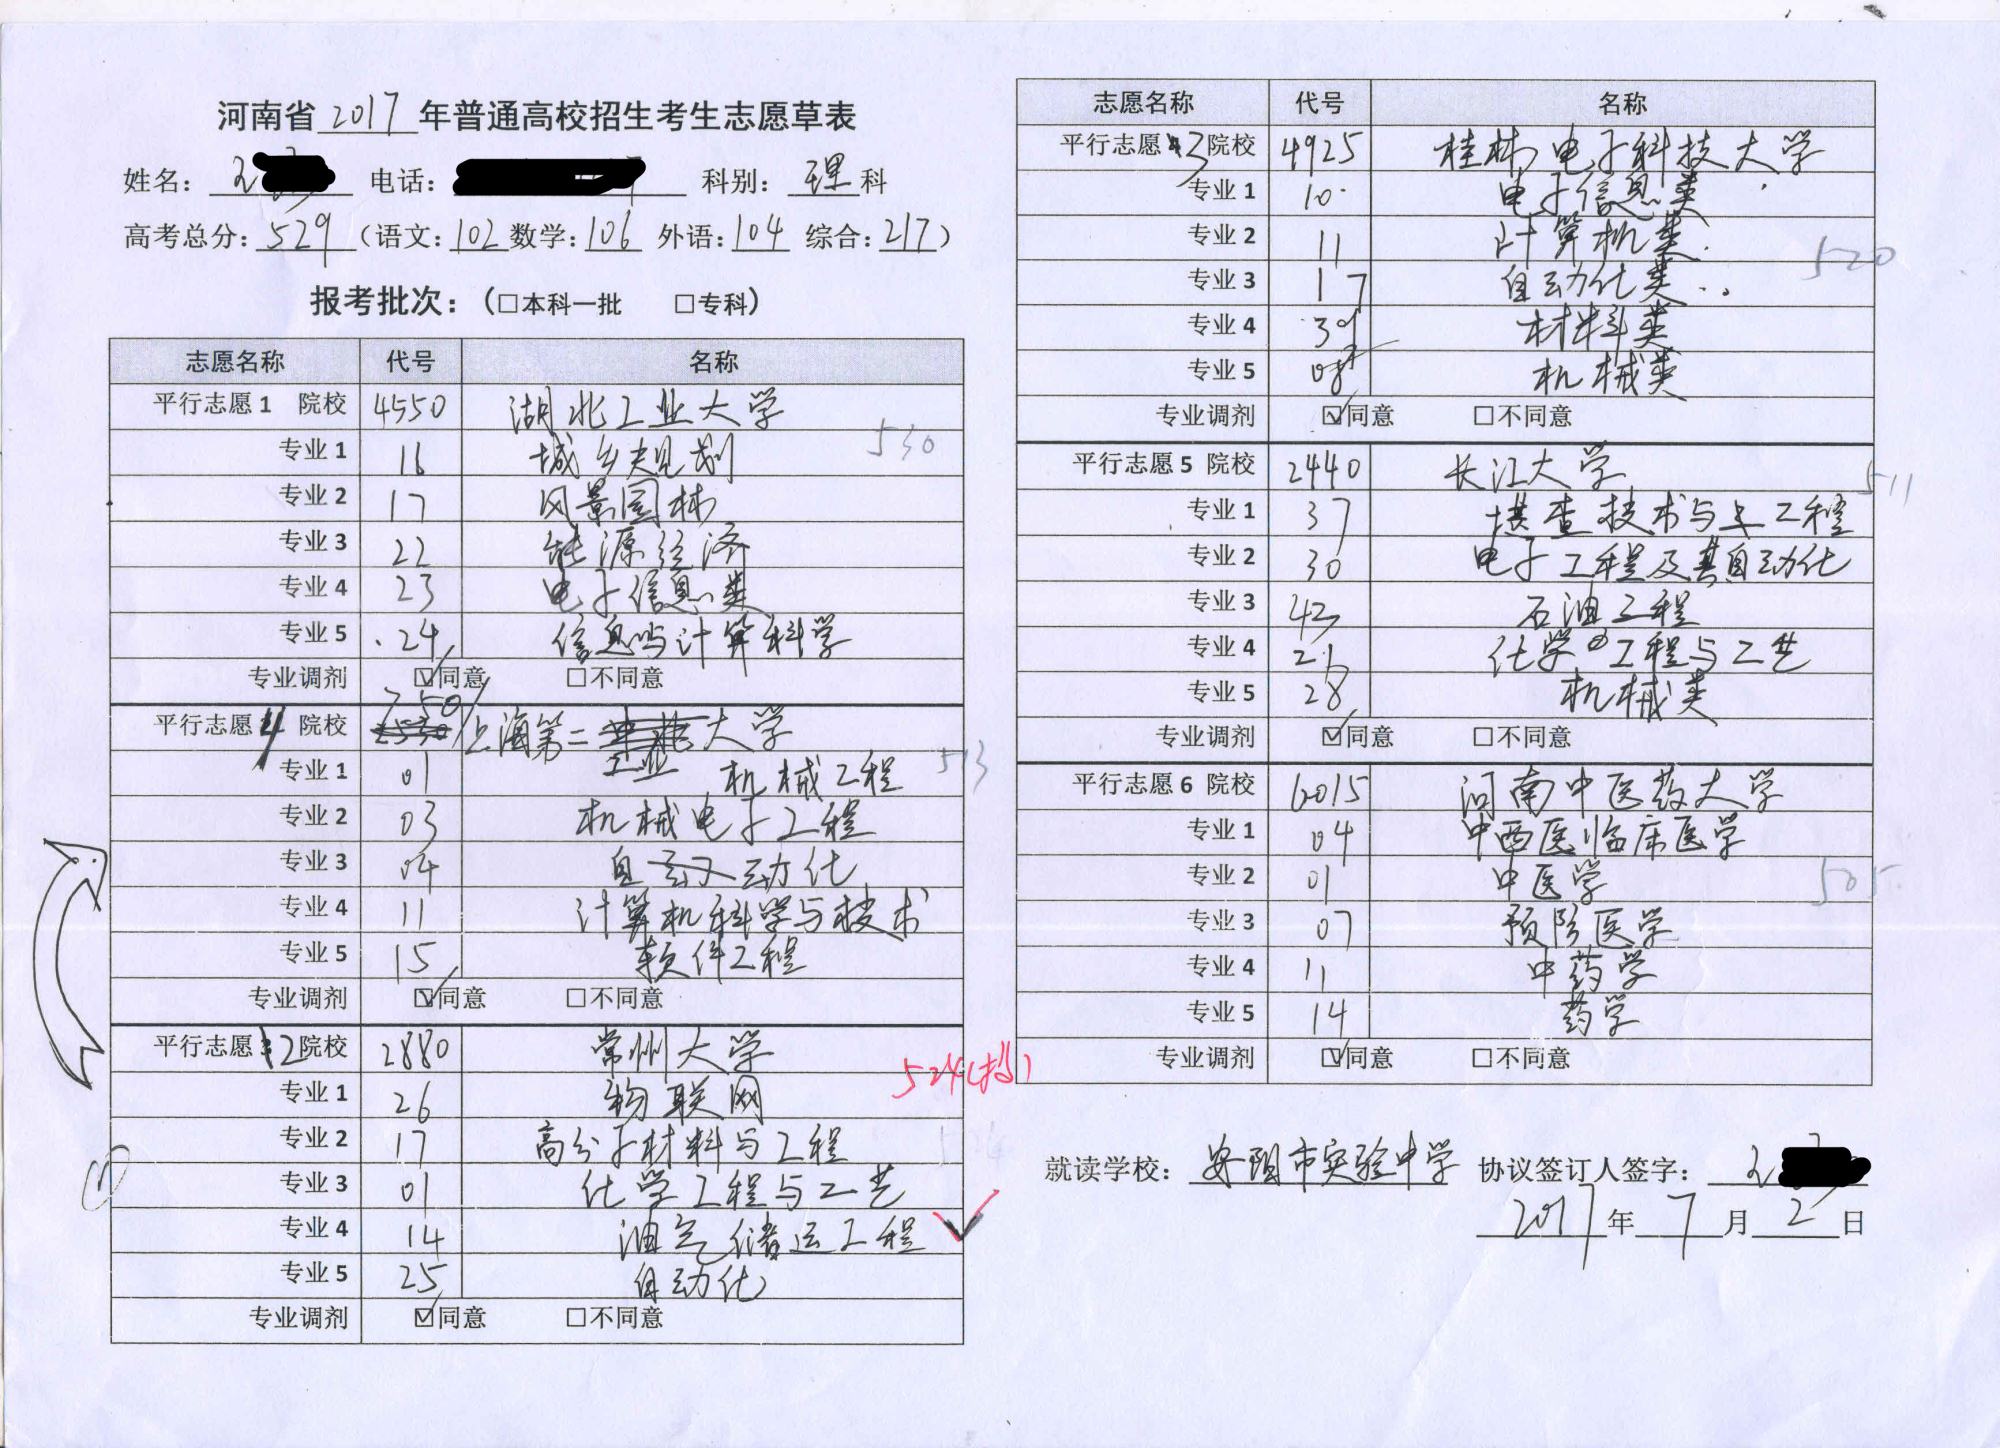 河南省 2017 年普通高校招生考生志愿草表
姓名： 电话： 科别：理科
高考总分：529（语文：102 数学：106 外语：104 综合：217）
报考批次：（□本科一批 □专科）
志愿名称 代号 名称
平行志愿1 院校 4550 湖北工业大学
530
专业1 16 城乡规划
专业2 17 风景园林
专业3 22 能源经济
专业4 23 电子信息类
专业5 24 信息与计算科学
专业调剂 ☑同意 □不同意
平行志愿4 院校 2550 上海第二工业大学
513
专业1 01 机械工程
专业2 03 机械电子工程
专业3 04 自动化
专业4 11 计算机科学与技术
专业5 15 软件工程
专业调剂 ☑同意 □不同意
平行志愿2院校 2880 常州大学
524(档)
专业1 26 物联网
专业2 17 高分子材料与工程
专业3 01 化学工程与工艺
专业4 14 油气储运工程
专业5 25 自动化
专业调剂 ☑同意 □不同意
志愿名称 代号 名称
平行志愿3院校 4925 桂林电子科技大学
专业1 10 电子信息类
专业2 11 计算机类
520
专业3 17 自动化类
专业4 39 材料类
专业5 08 机械类
专业调剂 ☑同意 □不同意
平行志愿5 院校 2440 长江大学
511
专业1 37 勘查技术与工程
专业2 30 电子工程及其自动化
专业3 42 石油工程
专业4 21 化学工程与工艺
专业5 28 机械类
专业调剂 ☑同意 □不同意
平行志愿6 院校 6015 河南中医药大学
专业1 04 中西医临床医学
专业2 01 中医学
505
专业3 07 预防医学
专业4 11 中药学
专业5 14 药学
专业调剂 ☑同意 □不同意
就读学校：安阳市实验中学 协议签订人签字：
2017年7月2日